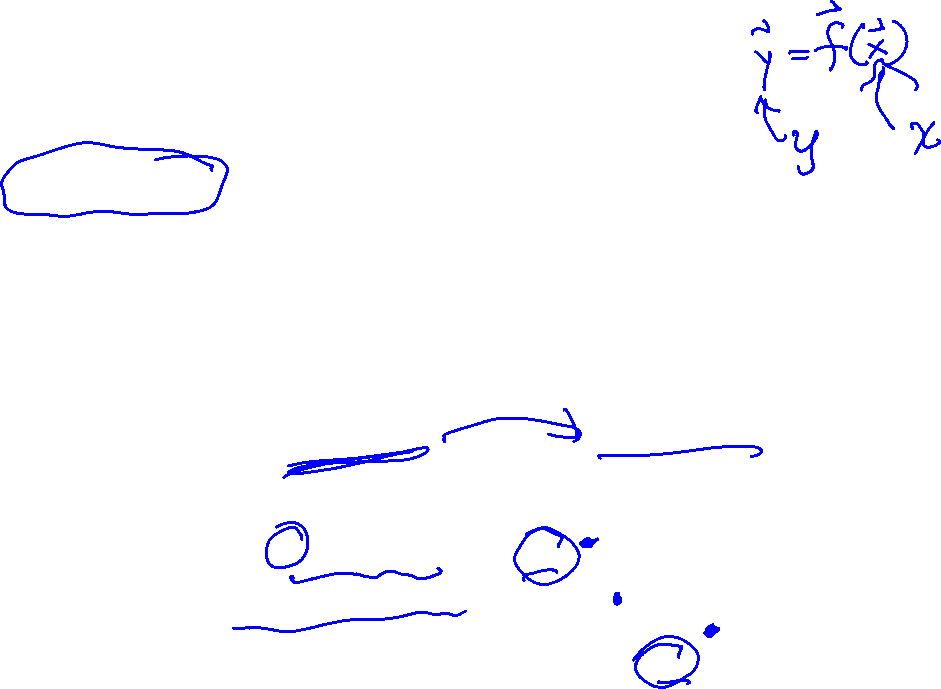 $\vec{y} = \vec{f}(\vec{x})$
y x